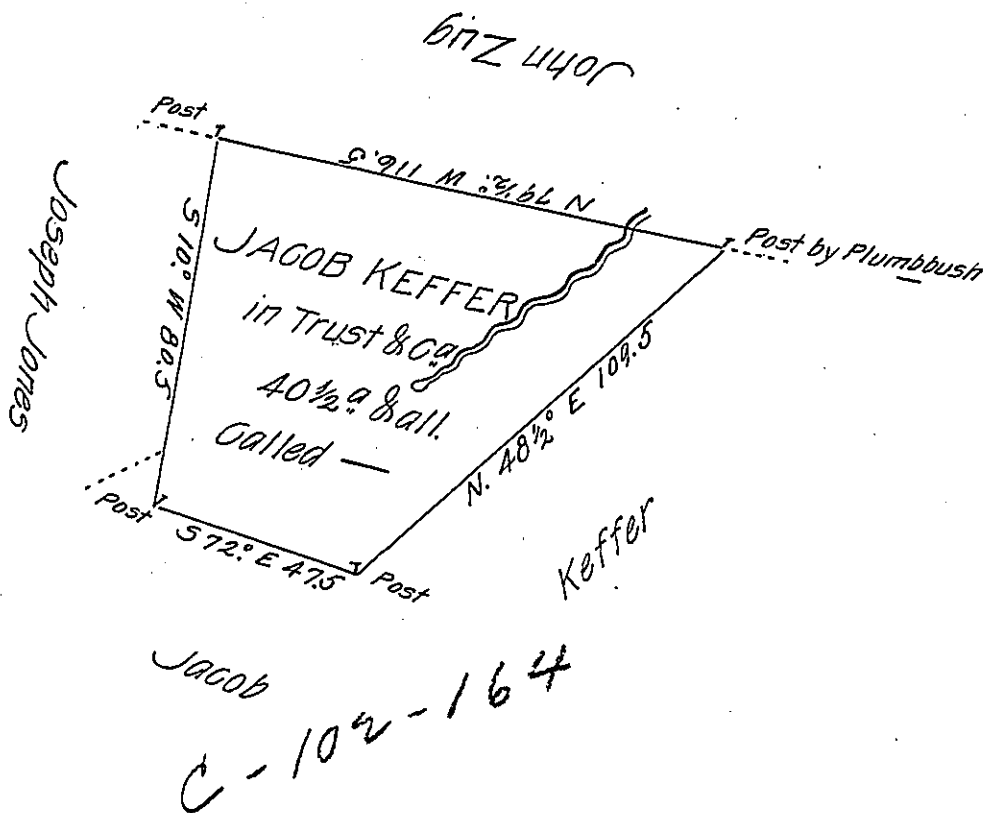 John Zug
Post
N 79½° W 116.5
Post by Plumbbush
Joseph Jones
S 10° W 80.5
JACOB KEFFER
in Trust & Ca
40½ a & all.
Called —
N. 48½° E 109.5
Post
S 72° E 47.5
Post
Keffer
Jacob
C-102-164